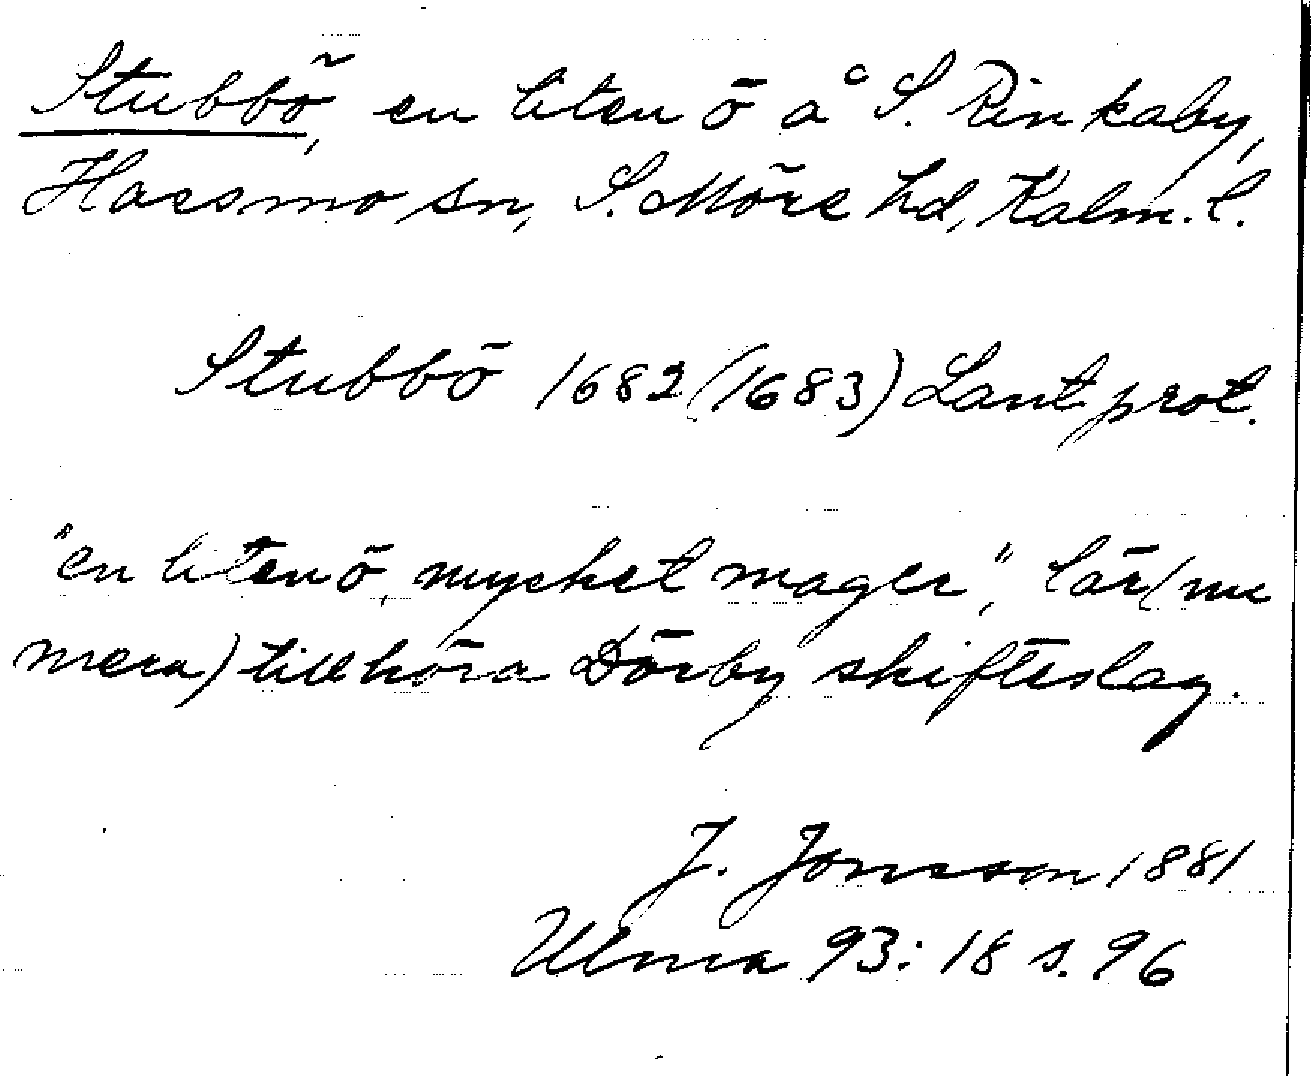 Stubbö, en liten ö å S. Rinkaby,
Hossmo sn, S. Möre hd, Kalm. l.
Stubbö 1682 (1683) Lantprot.
"en liten ö, mycket mager", lär (nu
mera) tillhöra Dörby skifteslag.
J. Jonsson 1881
Ulma 93:18 s. 96